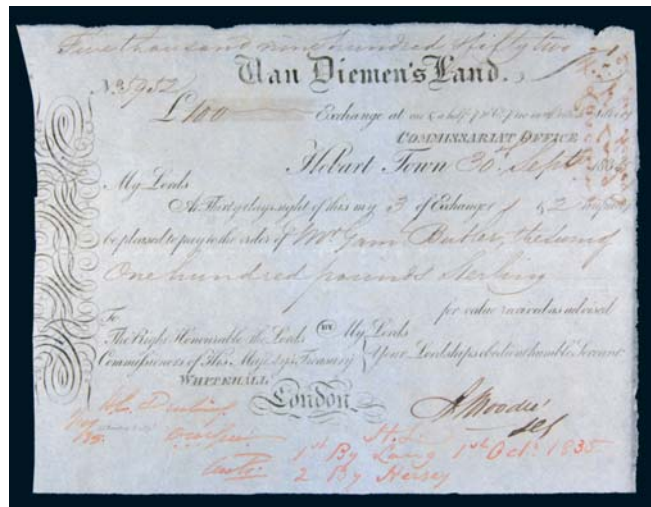 Five thousand nine hundred & fifty two
Van Diemen's Land.
No. 5952
£100 Exchange at one & a half
COMMISSARIAT OFFICE
Hobart Town 30th Septr 183
My Lords
At Thirty days sight of this my 3 of Exchange 1 & 2
be pleased to pay to the order of Mr Butler, the sum of
One hundred pounds Sterling
for value received as advised
To My Lords
The Right Honourable the Lords
Commissioners of His Majesty's Treasury Your Lordships obedient humble Servant
WHITEHALL
London
A Moodie
1st By Lang 1st Oct. 1835
2 By Hersey